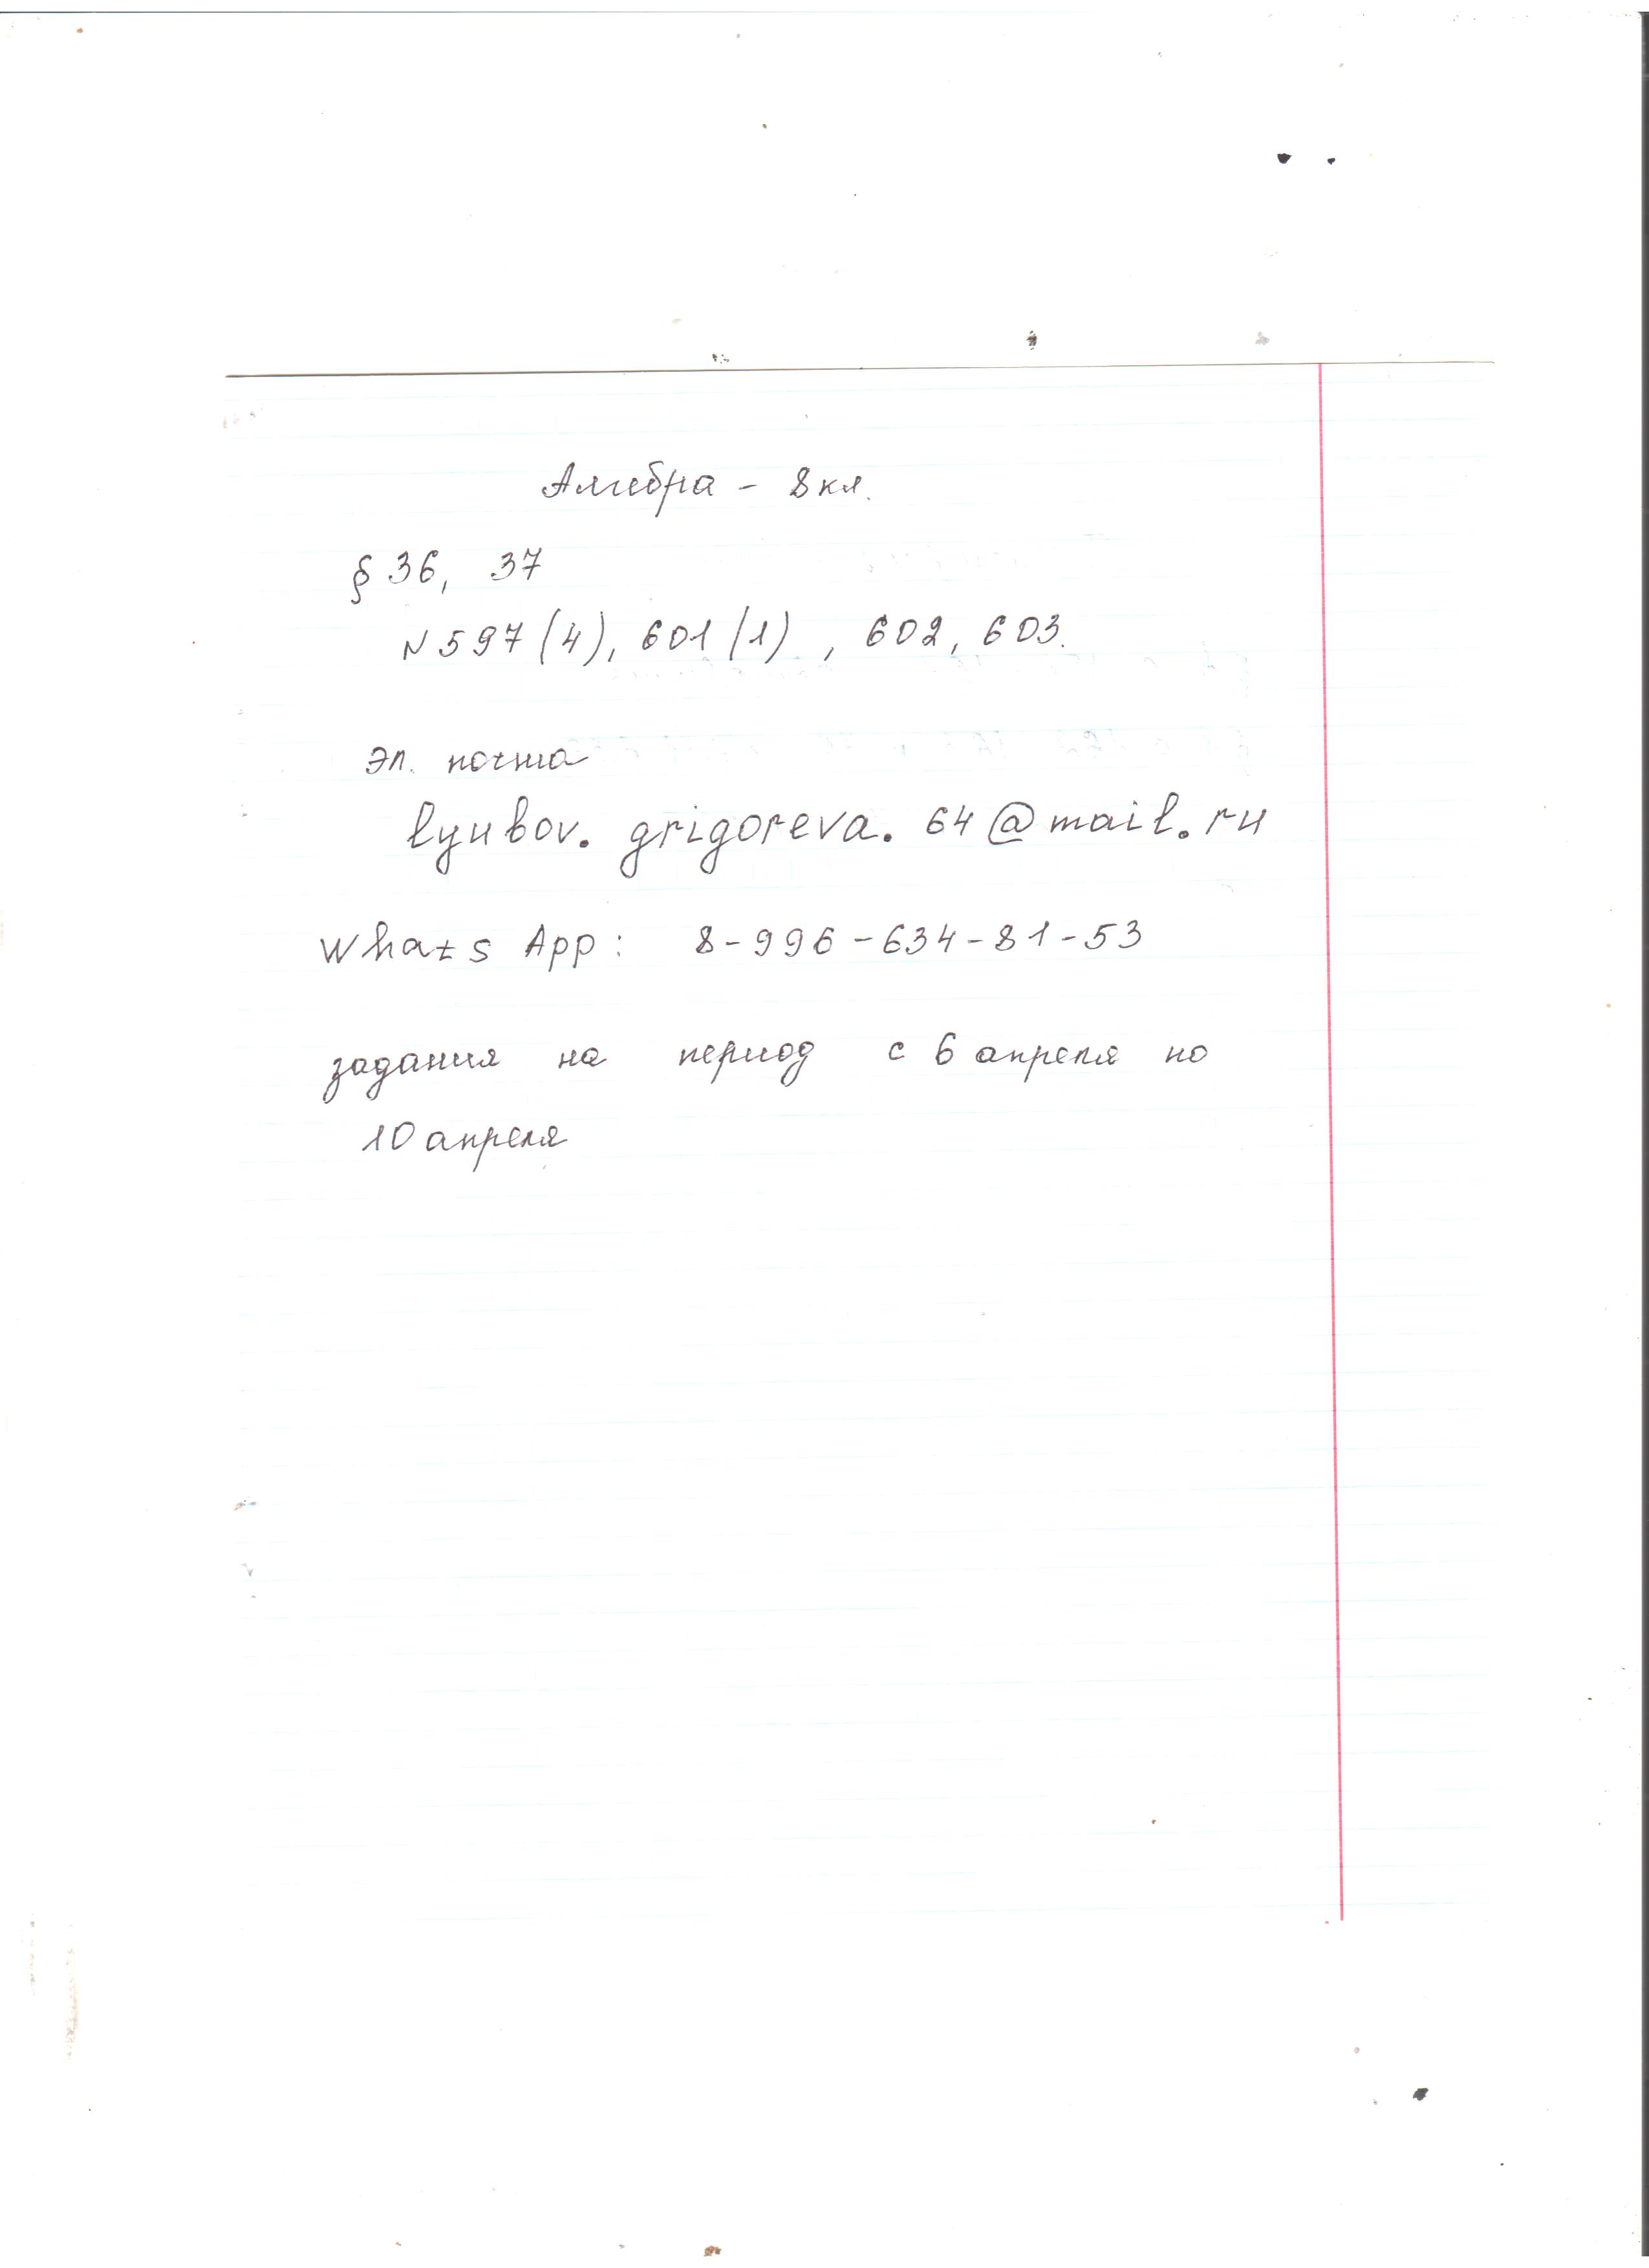 Алгебра - 8 кл.
§ 36, 37
N 597 (4), 601 (1) , 602, 603.
эл. почта
lyubov. grigoreva. 64 @ mail. ru
Whats App: 8-996-634-81-53
задания на период с 6 апреля по
10 апреля